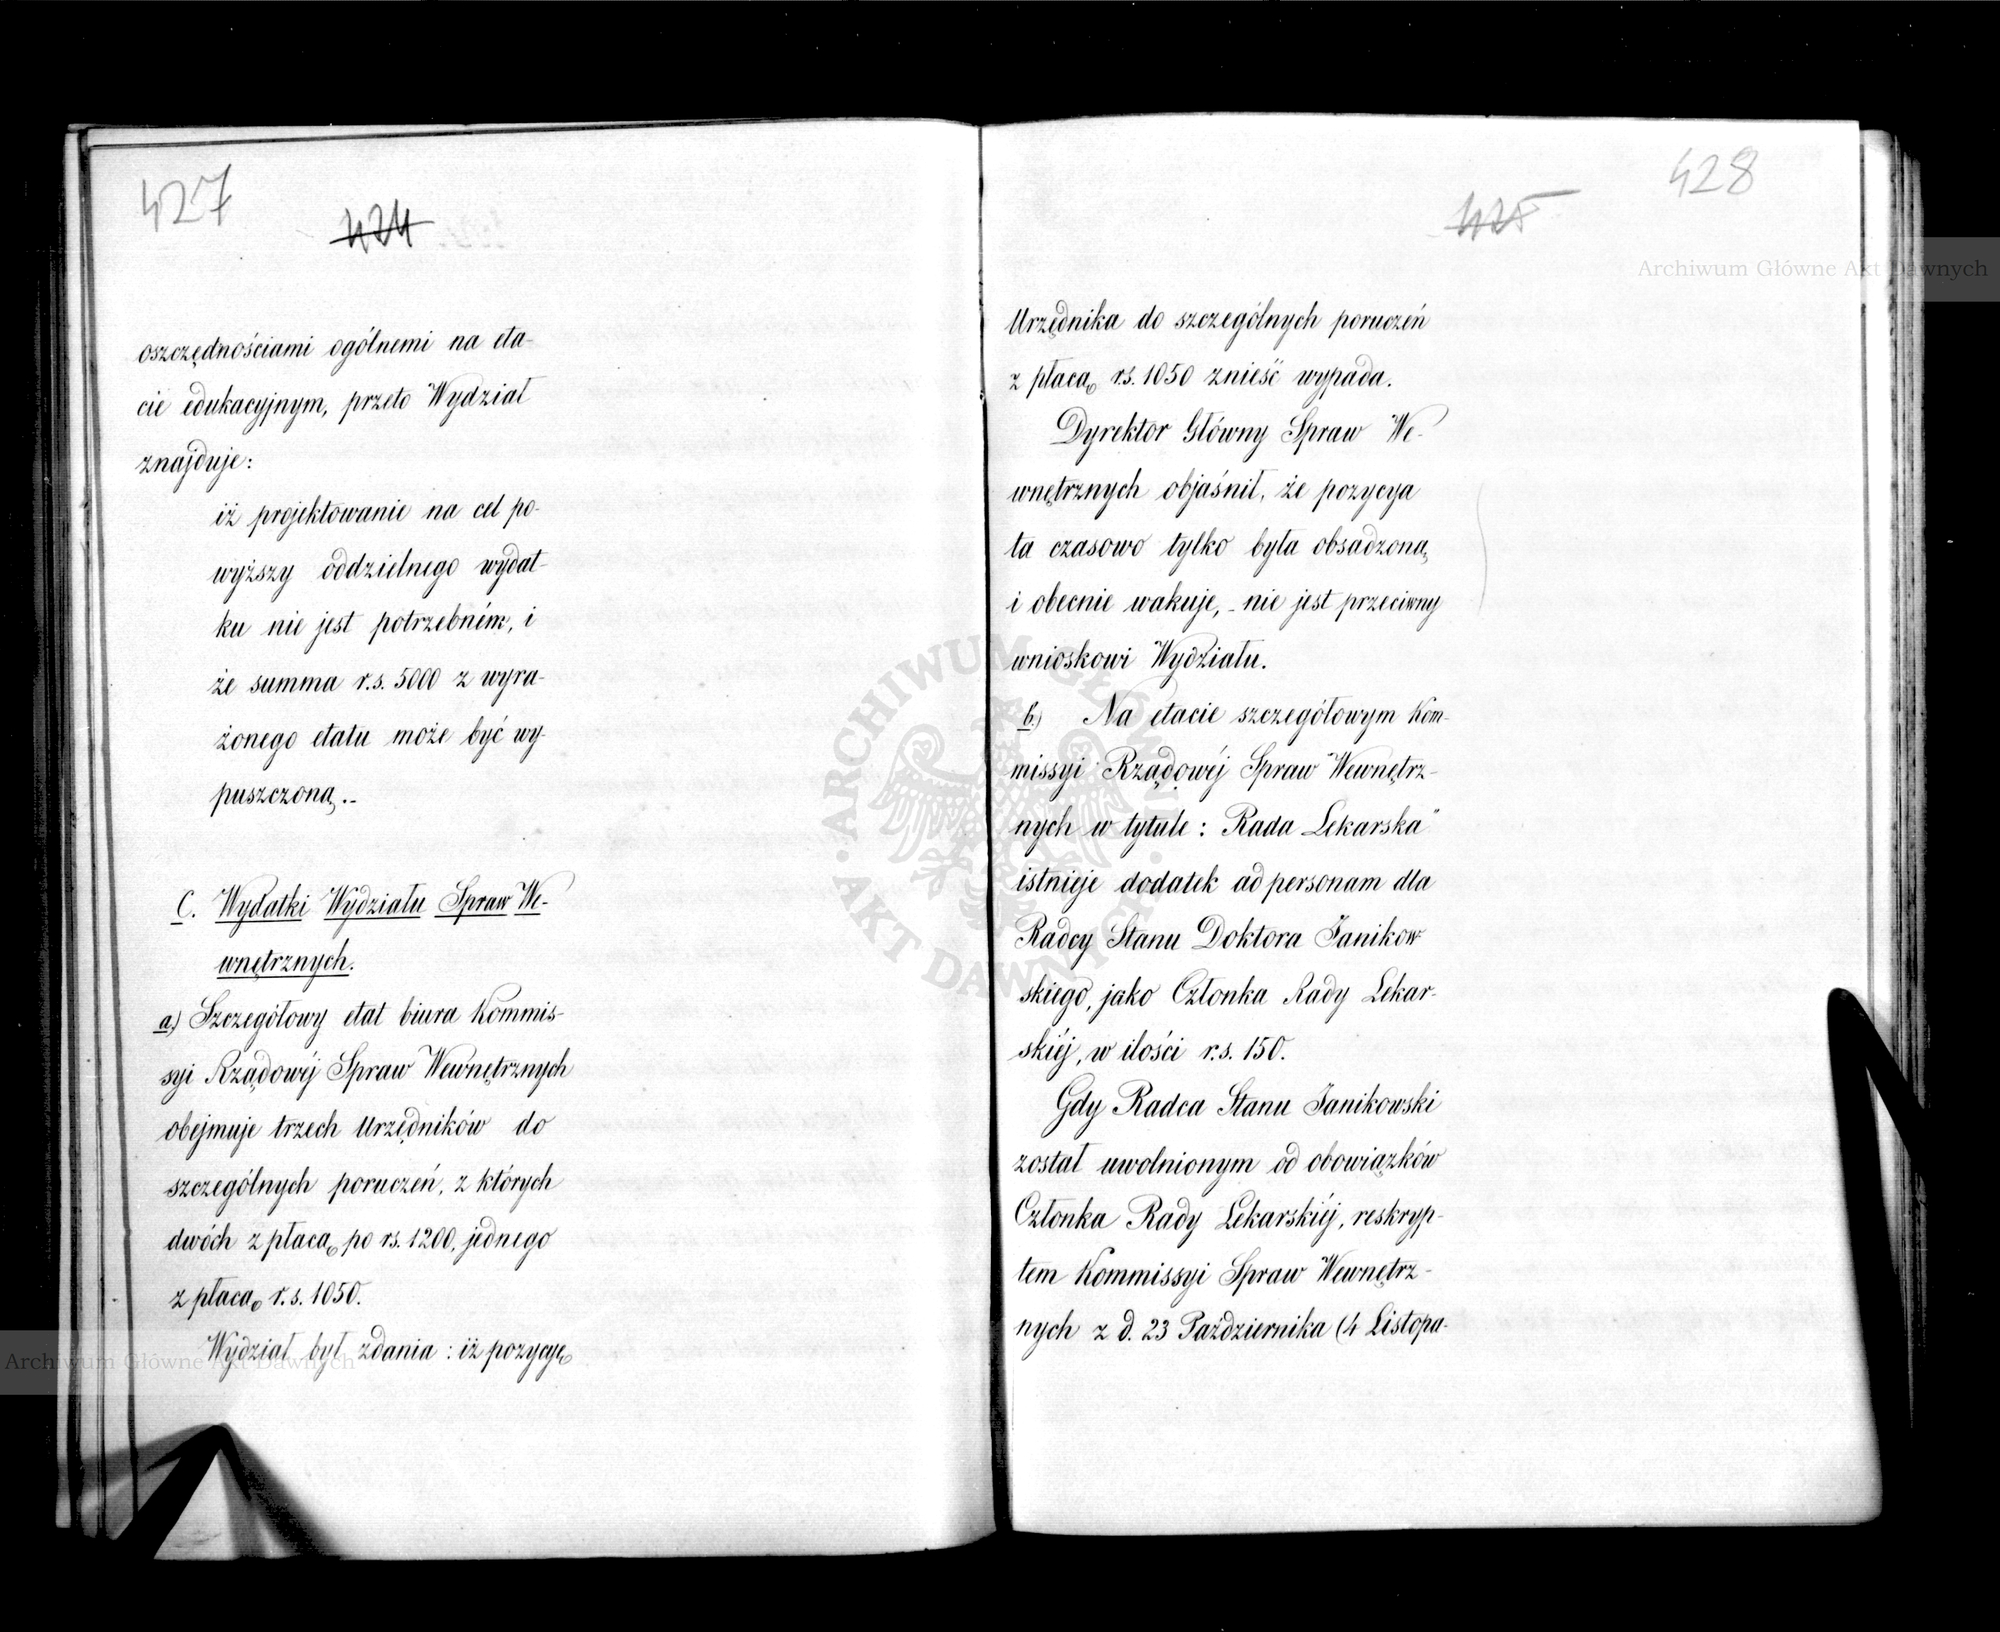 427
424
oszczędnościami ogólnemi na eta-
cie edukacyjnym, przeto Wydział
znajduje:
iż projektowanie na cel po-
wyższy oddzielnego wydat-
ku nie jest potrzebném, i
że summa r.s. 5000 z wyra-
żonego etatu może być wy-
puszczoną.-
C. Wydatki Wydziału Spraw We-
wnętrznych.
a) Szczegółowy etat biura Kommis-
syi Rządowéj Spraw Wewnętrznych
obejmuje trzech Urzędników do
szczególnych poruczeń, z których
dwóch z płacą po rs. 1200, jednego
z płacą r.s. 1050.
Wydział był zdania: iż pozycyę
Archiwum Główne Akt Dawnych
428
425
Archiwum Główne Akt Dawnych
Urzędnika do szczególnych poruczeń
z płacą r.s. 1050 znieść wypada.
Dyrektor Główny Spraw We-
wnętrznych objaśnił, że pozycya
ta czasowo tylko była obsadzoną,
i obecnie wakuje, - nie jest przeciwny
wnioskowi Wydziału.
b.) Na etacie szczegółowym Kom-
missyi Rządowéj Spraw Wewnętrz-
nych w tytule: Rada Lekarska"
istnieje dodatek ad personam dla
Radcy Stanu Doktora Janikow-
skiego, jako Członka Rady Lekar-
skiéj, w ilości r.s. 150.
Gdy Radca Stanu Janikowski
został uwolnionym od obowiązków
Członka Rady Lekarskiéj, reskryp-
tem Kommissyi Spraw Wewnętrz-
nych z d. 23 Października (4 Listopa-
ARCHIWUM GŁÓWNE AKT DAWNYCH